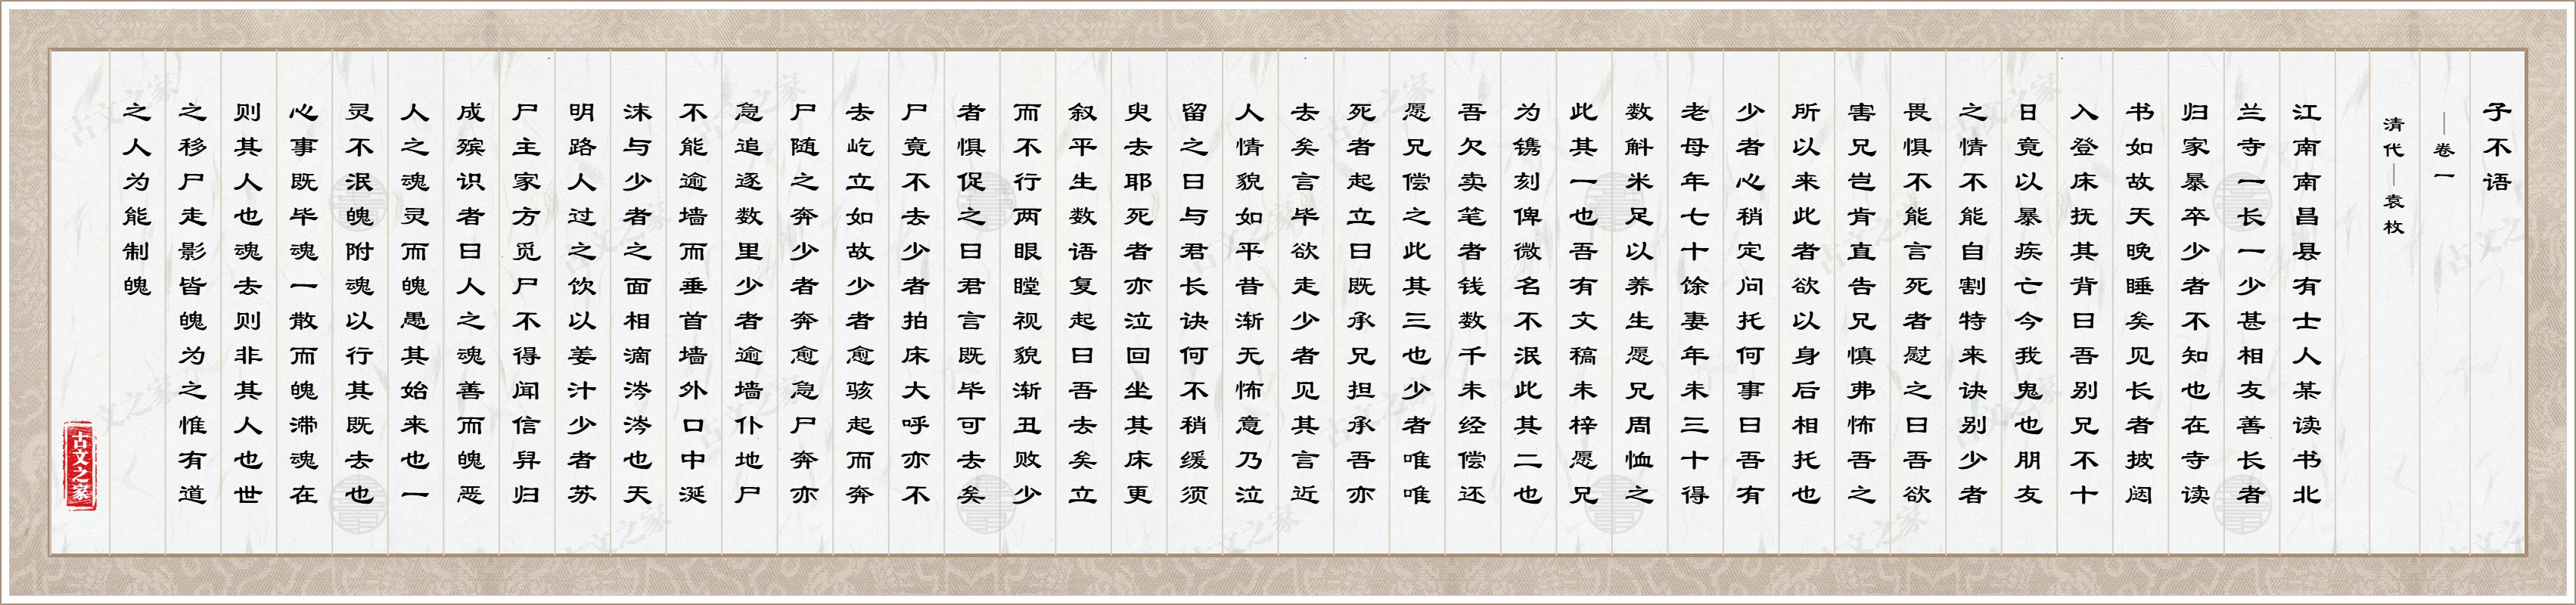 子不语
——卷一
清代——袁枚
江南南昌县有士人某读书北
兰寺一长一少甚相友善长者
归家暴卒少者不知也在寺读
书如故天晚睡矣见长者披闼
入登床抚其背曰吾别兄不十
日竟以暴疾亡今我鬼也朋友
之情不能自割特来诀别少者
畏惧不能言死者慰之曰吾欲
害兄岂肯直告兄慎弗怖吾之
所以来此者欲以身后相托也
少者心稍定问托何事曰吾有
老母年七十馀妻年未三十得
数斛米足以养生愿兄周恤之
此其一也吾有文稿未梓愿兄
为镌刻俾微名不泯此其二也
吾欠卖笔者钱数千未经偿还
愿兄偿之此其三也少者唯唯
死者起立曰既承兄担承吾亦
去矣言毕欲走少者见其言近
人情貌如平昔渐无怖意乃泣
留之曰与君长诀何不稍缓须
臾去耶死者亦泣回坐其床更
叙平生数语复起曰吾去矣立
而不行两眼瞠视貌渐丑败少
者惧促之曰君言既毕可去矣
尸竟不去少者拍床大呼亦不
去屹立如故少者愈骇起而奔
尸随之奔少者奔愈急尸奔亦
急追逐数里少者逾墙仆地尸
不能逾墙而垂首墙外口中涎
沫与少者之面相滴涔涔也天
明路人过之饮以姜汁少者苏
尸主家方觅尸不得闻信舁归
成殡识者曰人之魂善而魄恶
人之魂灵而魄愚其始来也一
灵不泯魄附魂以行其既去也
心事既毕魂一散而魄滞魂在
则其人也魂去则非其人也世
之移尸走影皆魄为之惟有道
之人为能制魄
古文之家